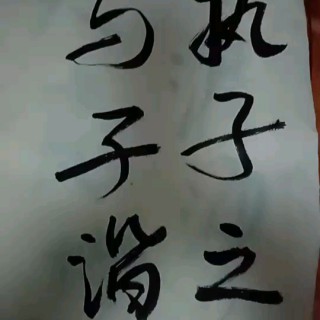 执子之
与子谐